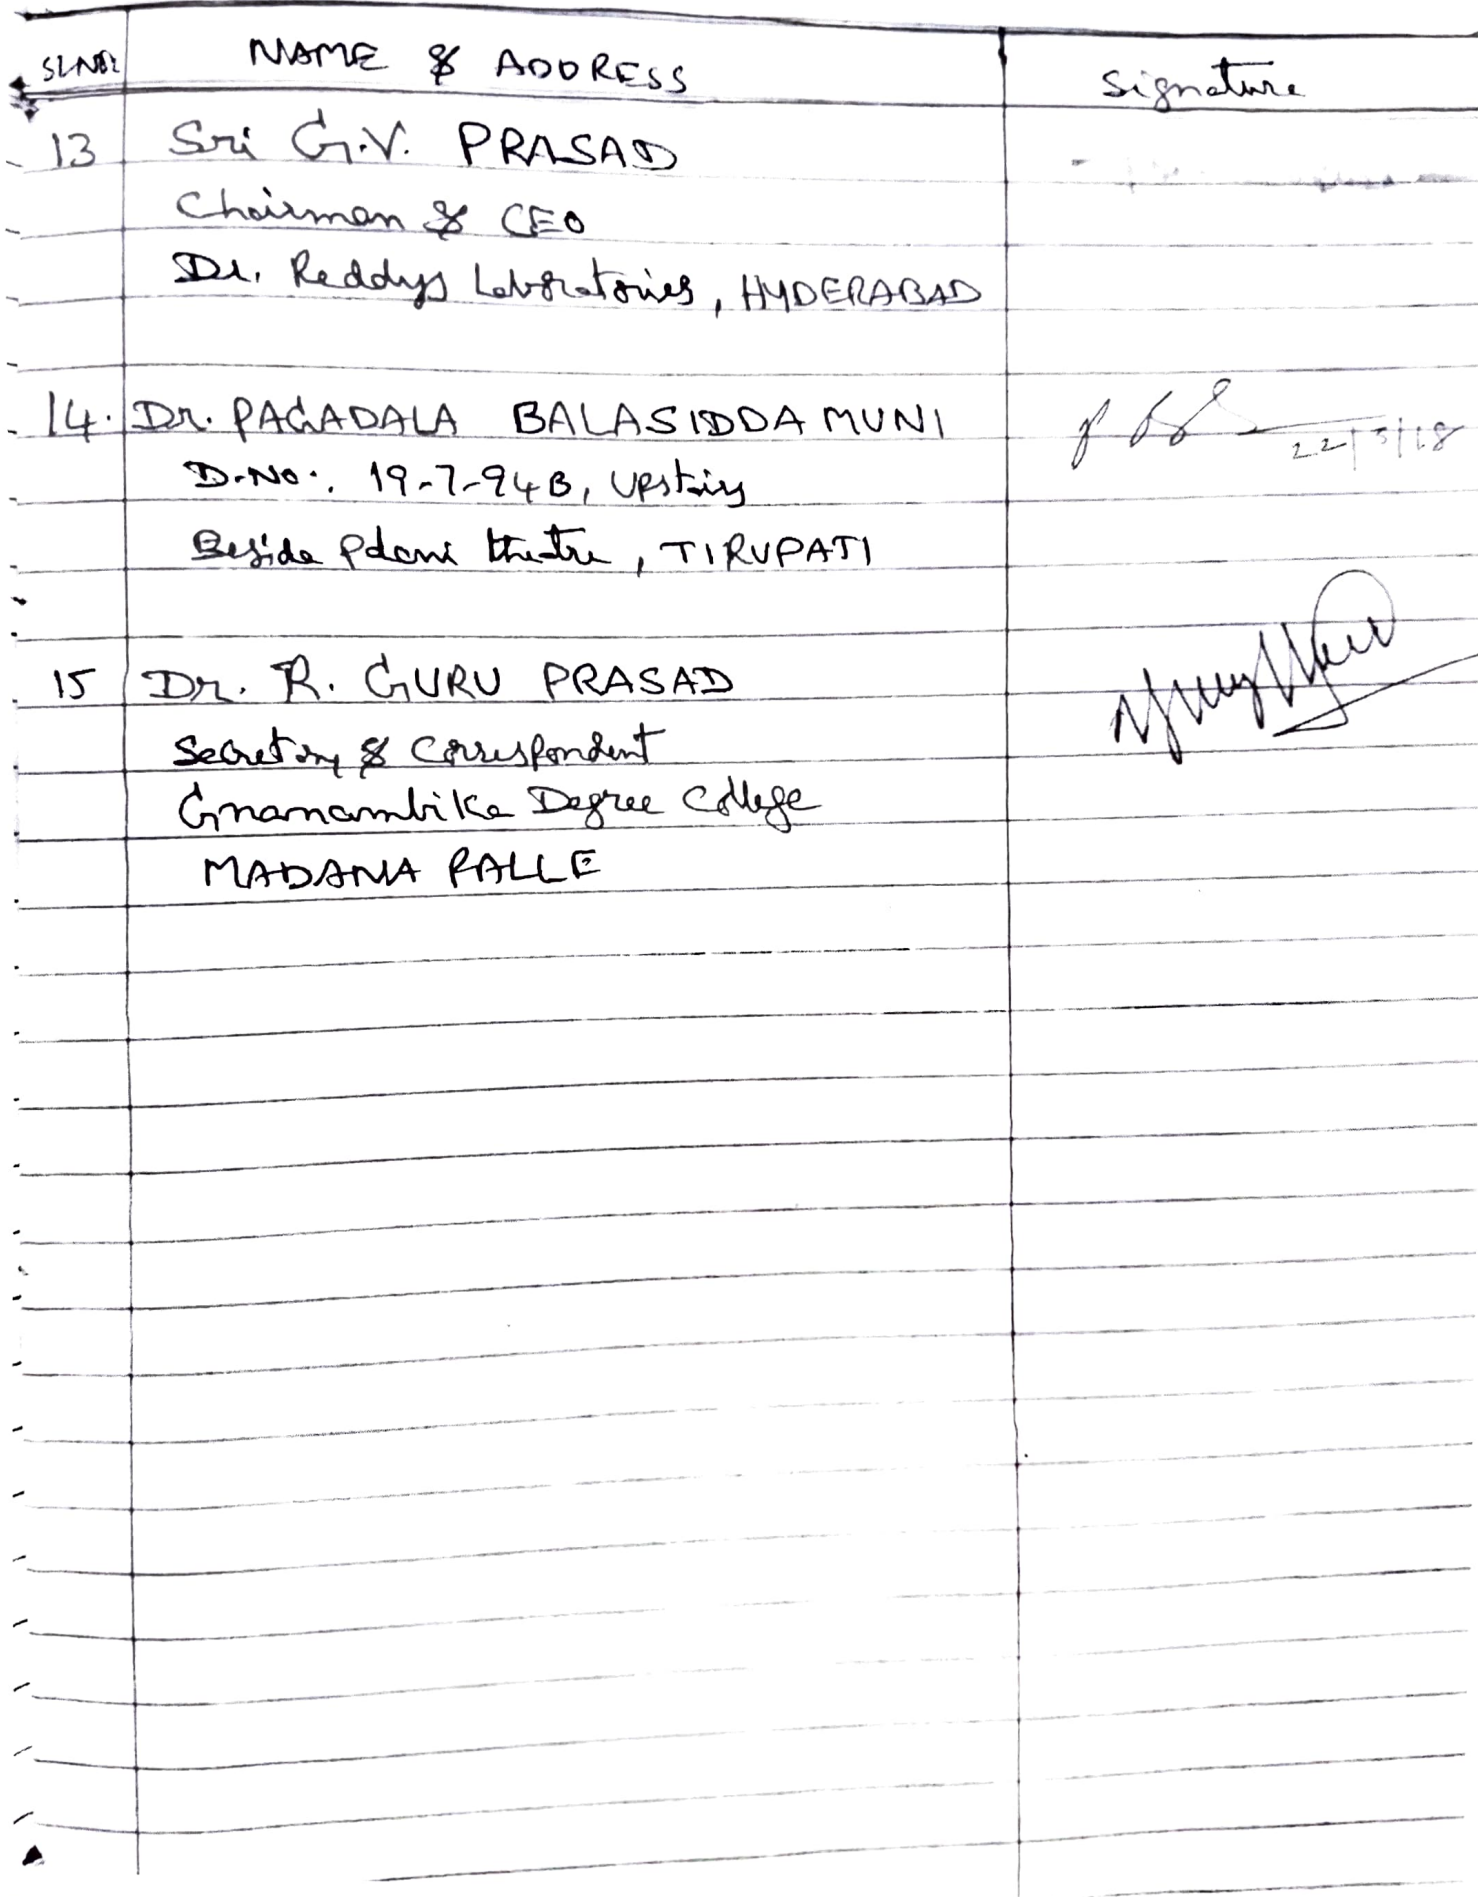 SL.NO. NAME & ADDRESS Signature
13 Sri G.V. PRASAD
Chairman & CEO
Dr. Reddys Laboratories, HYDERABAD
14. Dr. PAGADALA BALASIDDA MUNI
D.No.: 19-7-94B, Upstairs 22/5/18
Beside theatre, TIRUPATI
15 Dr. R. GURU PRASAD
Secretary & Correspondent
Gnanambika Degree College
MADANA PALLE